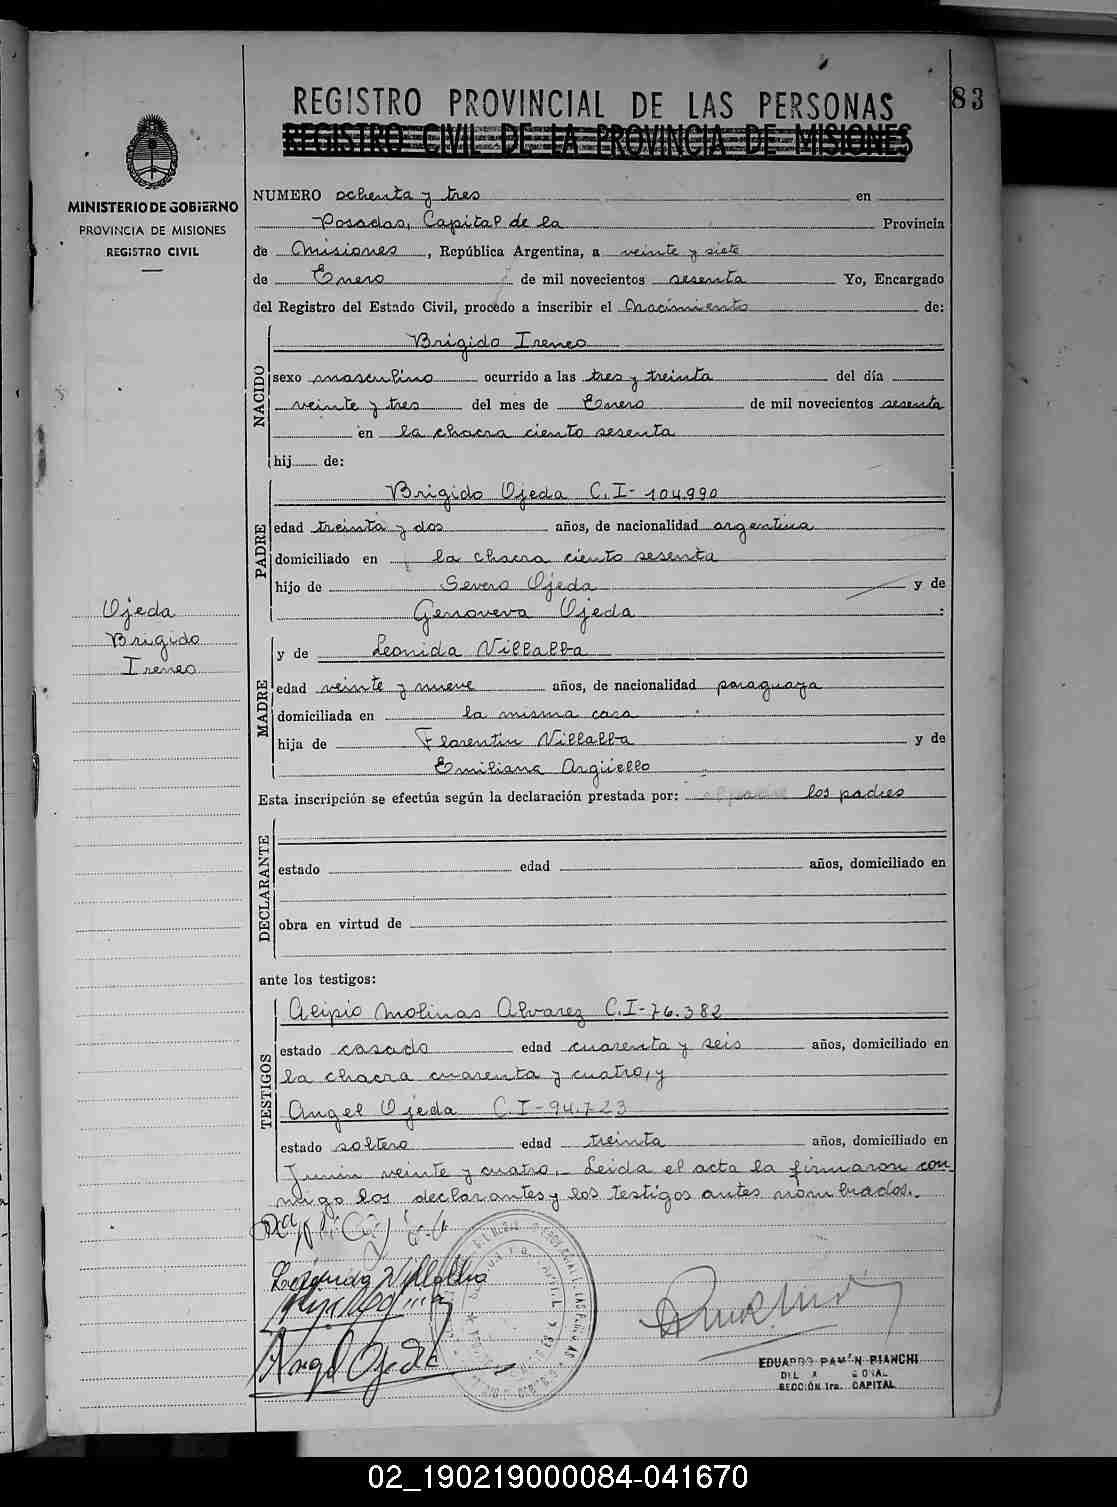 REGISTRO PROVINCIAL DE LAS PERSONAS
83
REGISTRO CIVIL DE LA PROVINCIA DE MISIONES
MINISTERIO DE GOBIERNO
PROVINCIA DE MISIONES
REGISTRO CIVIL
NUMERO ochenta y tres en
Posadas, Capital de la Provincia
de Misiones, República Argentina, a veinte y siete
de Enero de mil novecientos sesenta Yo, Encargado
del Registro del Estado Civil, procedo a inscribir el Nacimiento de:
NACIDO
Brigido Ireneo
sexo masculino ocurrido a las tres y treinta del día
veinte y tres del mes de Enero de mil novecientos sesenta
en la chacra ciento sesenta
hij de:
PADRE
Brigido Ojeda C.I-104.990
edad treinta y dos años, de nacionalidad argentina
domiciliado en la chacra ciento sesenta
hijo de Severo Ojeda y de
Genoveva Ojeda :
Ojeda
Brigido
Ireneo
MADRE
y de Leonida Villalba
edad veinte y nueve años, de nacionalidad paraguaya
domiciliada en la misma casa
hija de Florentin Villalba y de
Emiliana Argüello
Esta inscripción se efectúa según la declaración prestada por: los padres
DECLARANTE
estado edad años, domiciliado en
obra en virtud de
ante los testigos:
TESTIGOS
Alipio Molinas Alvarez C.I-76.382
estado casado edad cuarenta y seis años, domiciliado en
la chacra cuarenta y cuatro, y
Angel Ojeda C.I-94.723
estado soltero edad treinta años, domiciliado en
Junin veinte y cuatro.- Leida el acta la firmaron con-
migo los declarantes y los testigos antes nombrados.-
Leonida Villalba
Angel Ojeda
EDUARDO RAMÓN PIANCHI
SECCIÓN 1ra. CAPITAL
02_190219000084-041670